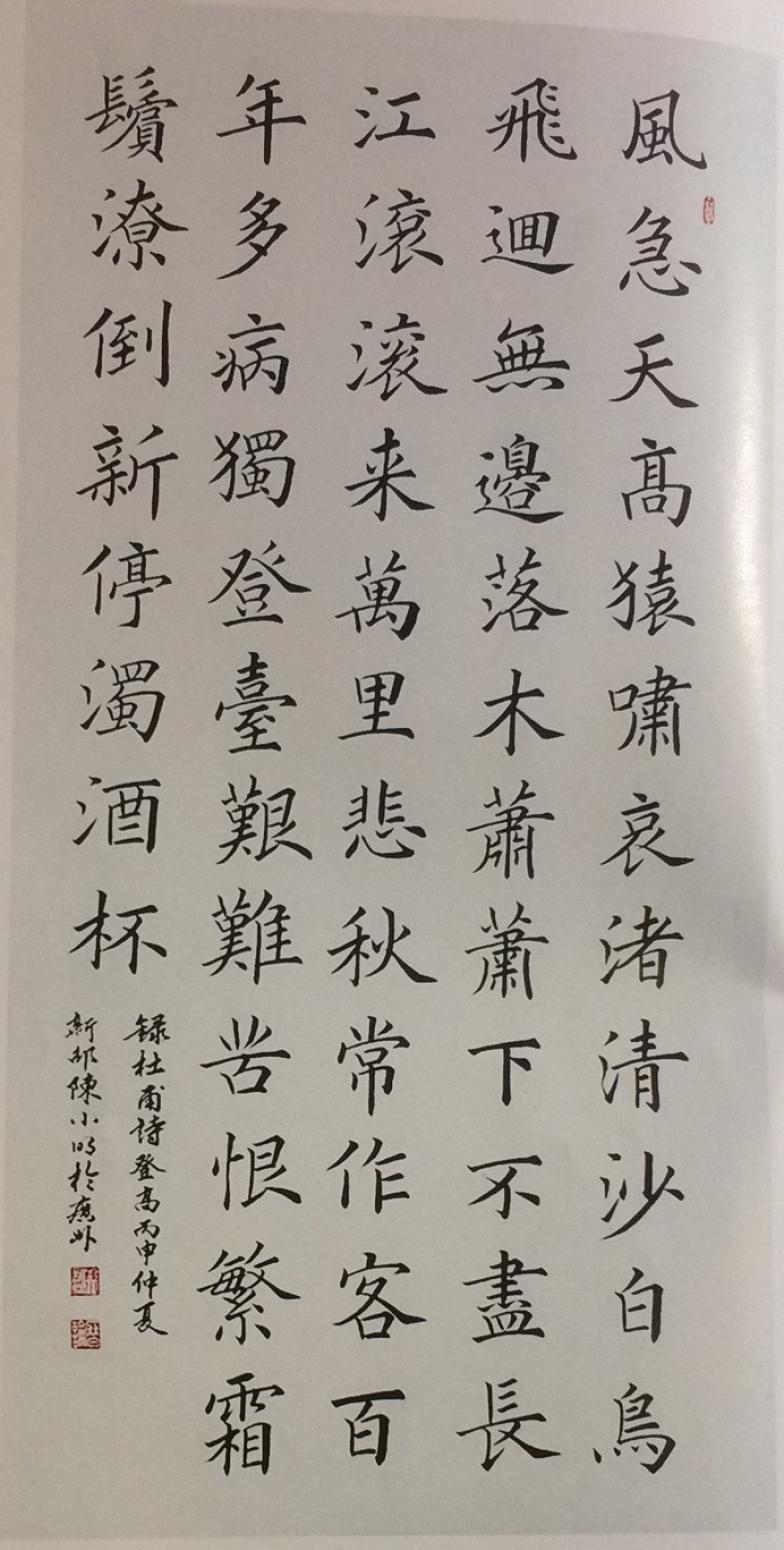 風急天高猿嘯哀渚清沙白鳥
飛迴無邊落木蕭蕭下不盡長
江滾滾来萬里悲秋常作客百
年多病獨登臺艱難苦恨繁霜
鬢潦倒新停濁酒杯
録杜甫詩登高丙申仲夏
新邵陳小明於